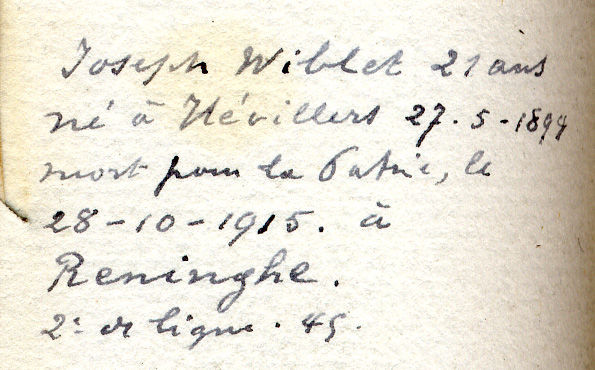 Joseph Wiblet 21 ans
né à Hévillers 27-5-1894
mort pour la Patrie, le
28-10-1915. à
Reninghe.
2e de ligne. 45.